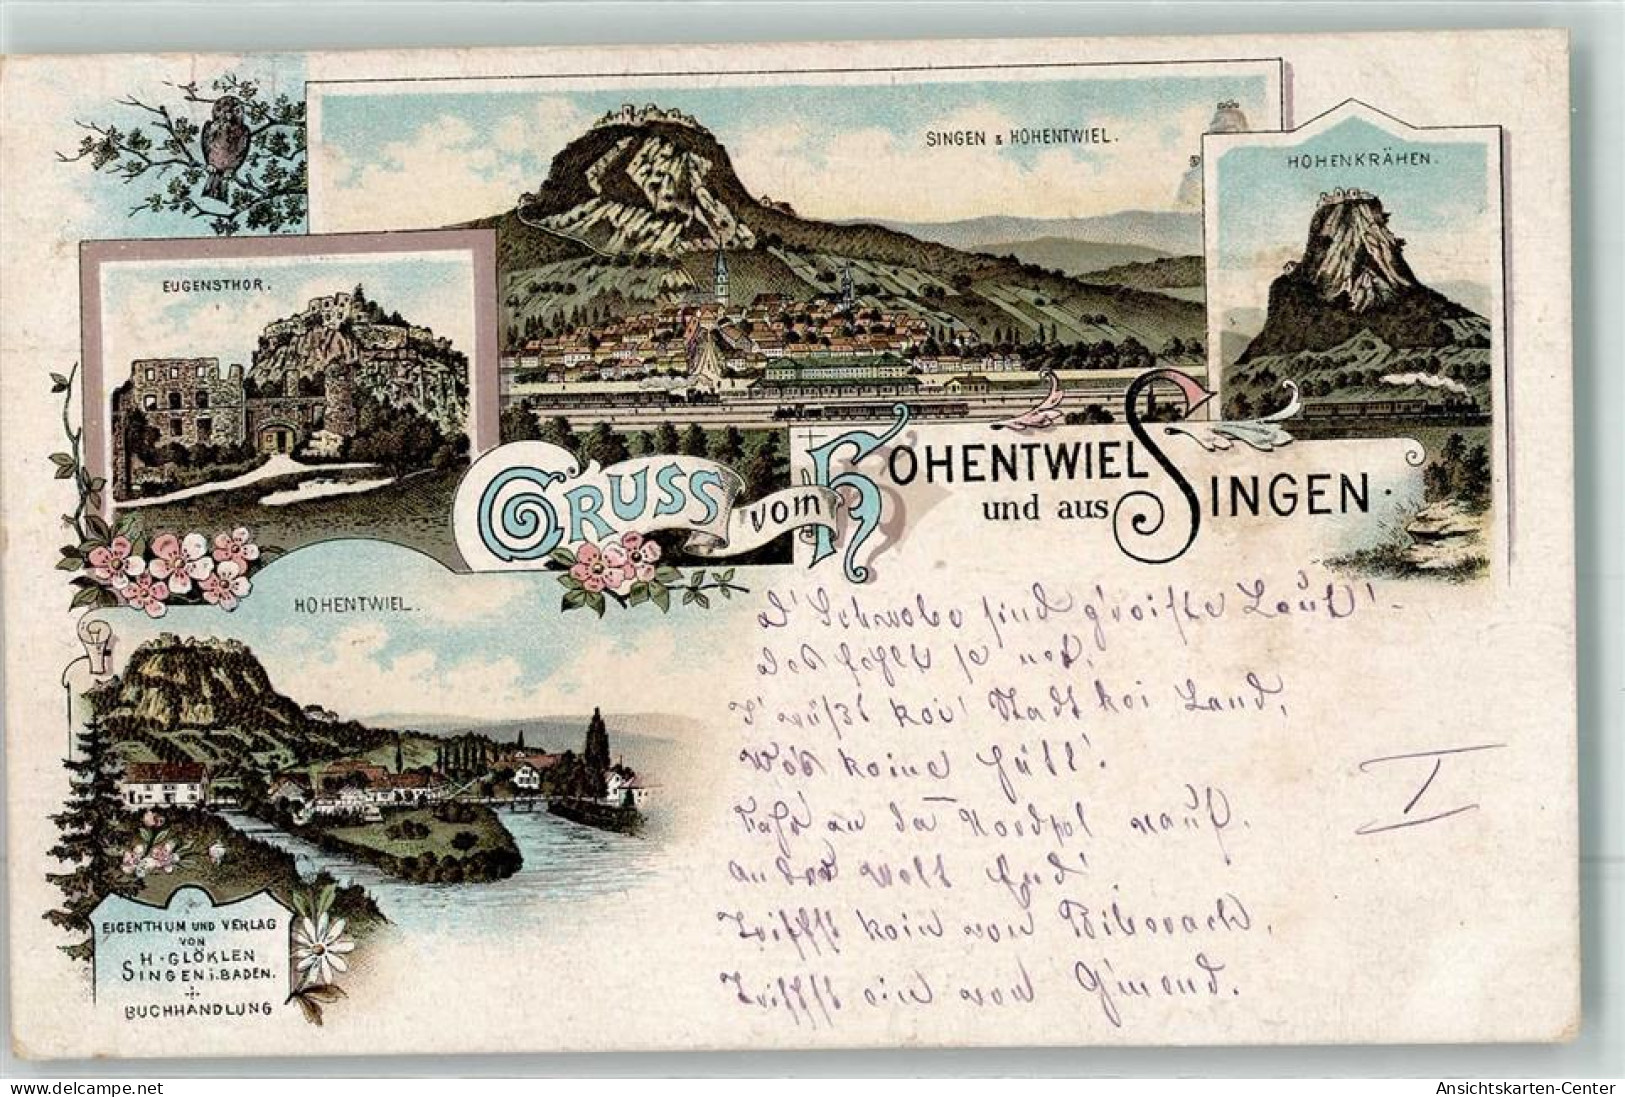 SINGEN & HOHENTWIEL.
HOHENKRÄHEN.
EUGENSTHOR.
GRUSS vom HOHENTWIEL
und aus SINGEN.
HOHENTWIEL.
D' Schwabe sind g'reiste Leut'!
des fehlt je net,
I' wüßt koi' Stadt koi Land,
Wo's keine hätt'.
Fahr an da Nordpol nauf,
an der Welt End'
Triffst koin von Biberach,
Triffst ein von Gmend.
I
EIGENTHUM UND VERLAG
VON
H. GLÖKLEN
SINGEN i. BADEN.
+
BUCHHANDLUNG
www.delcampe.net
Ansichtskarten-Center